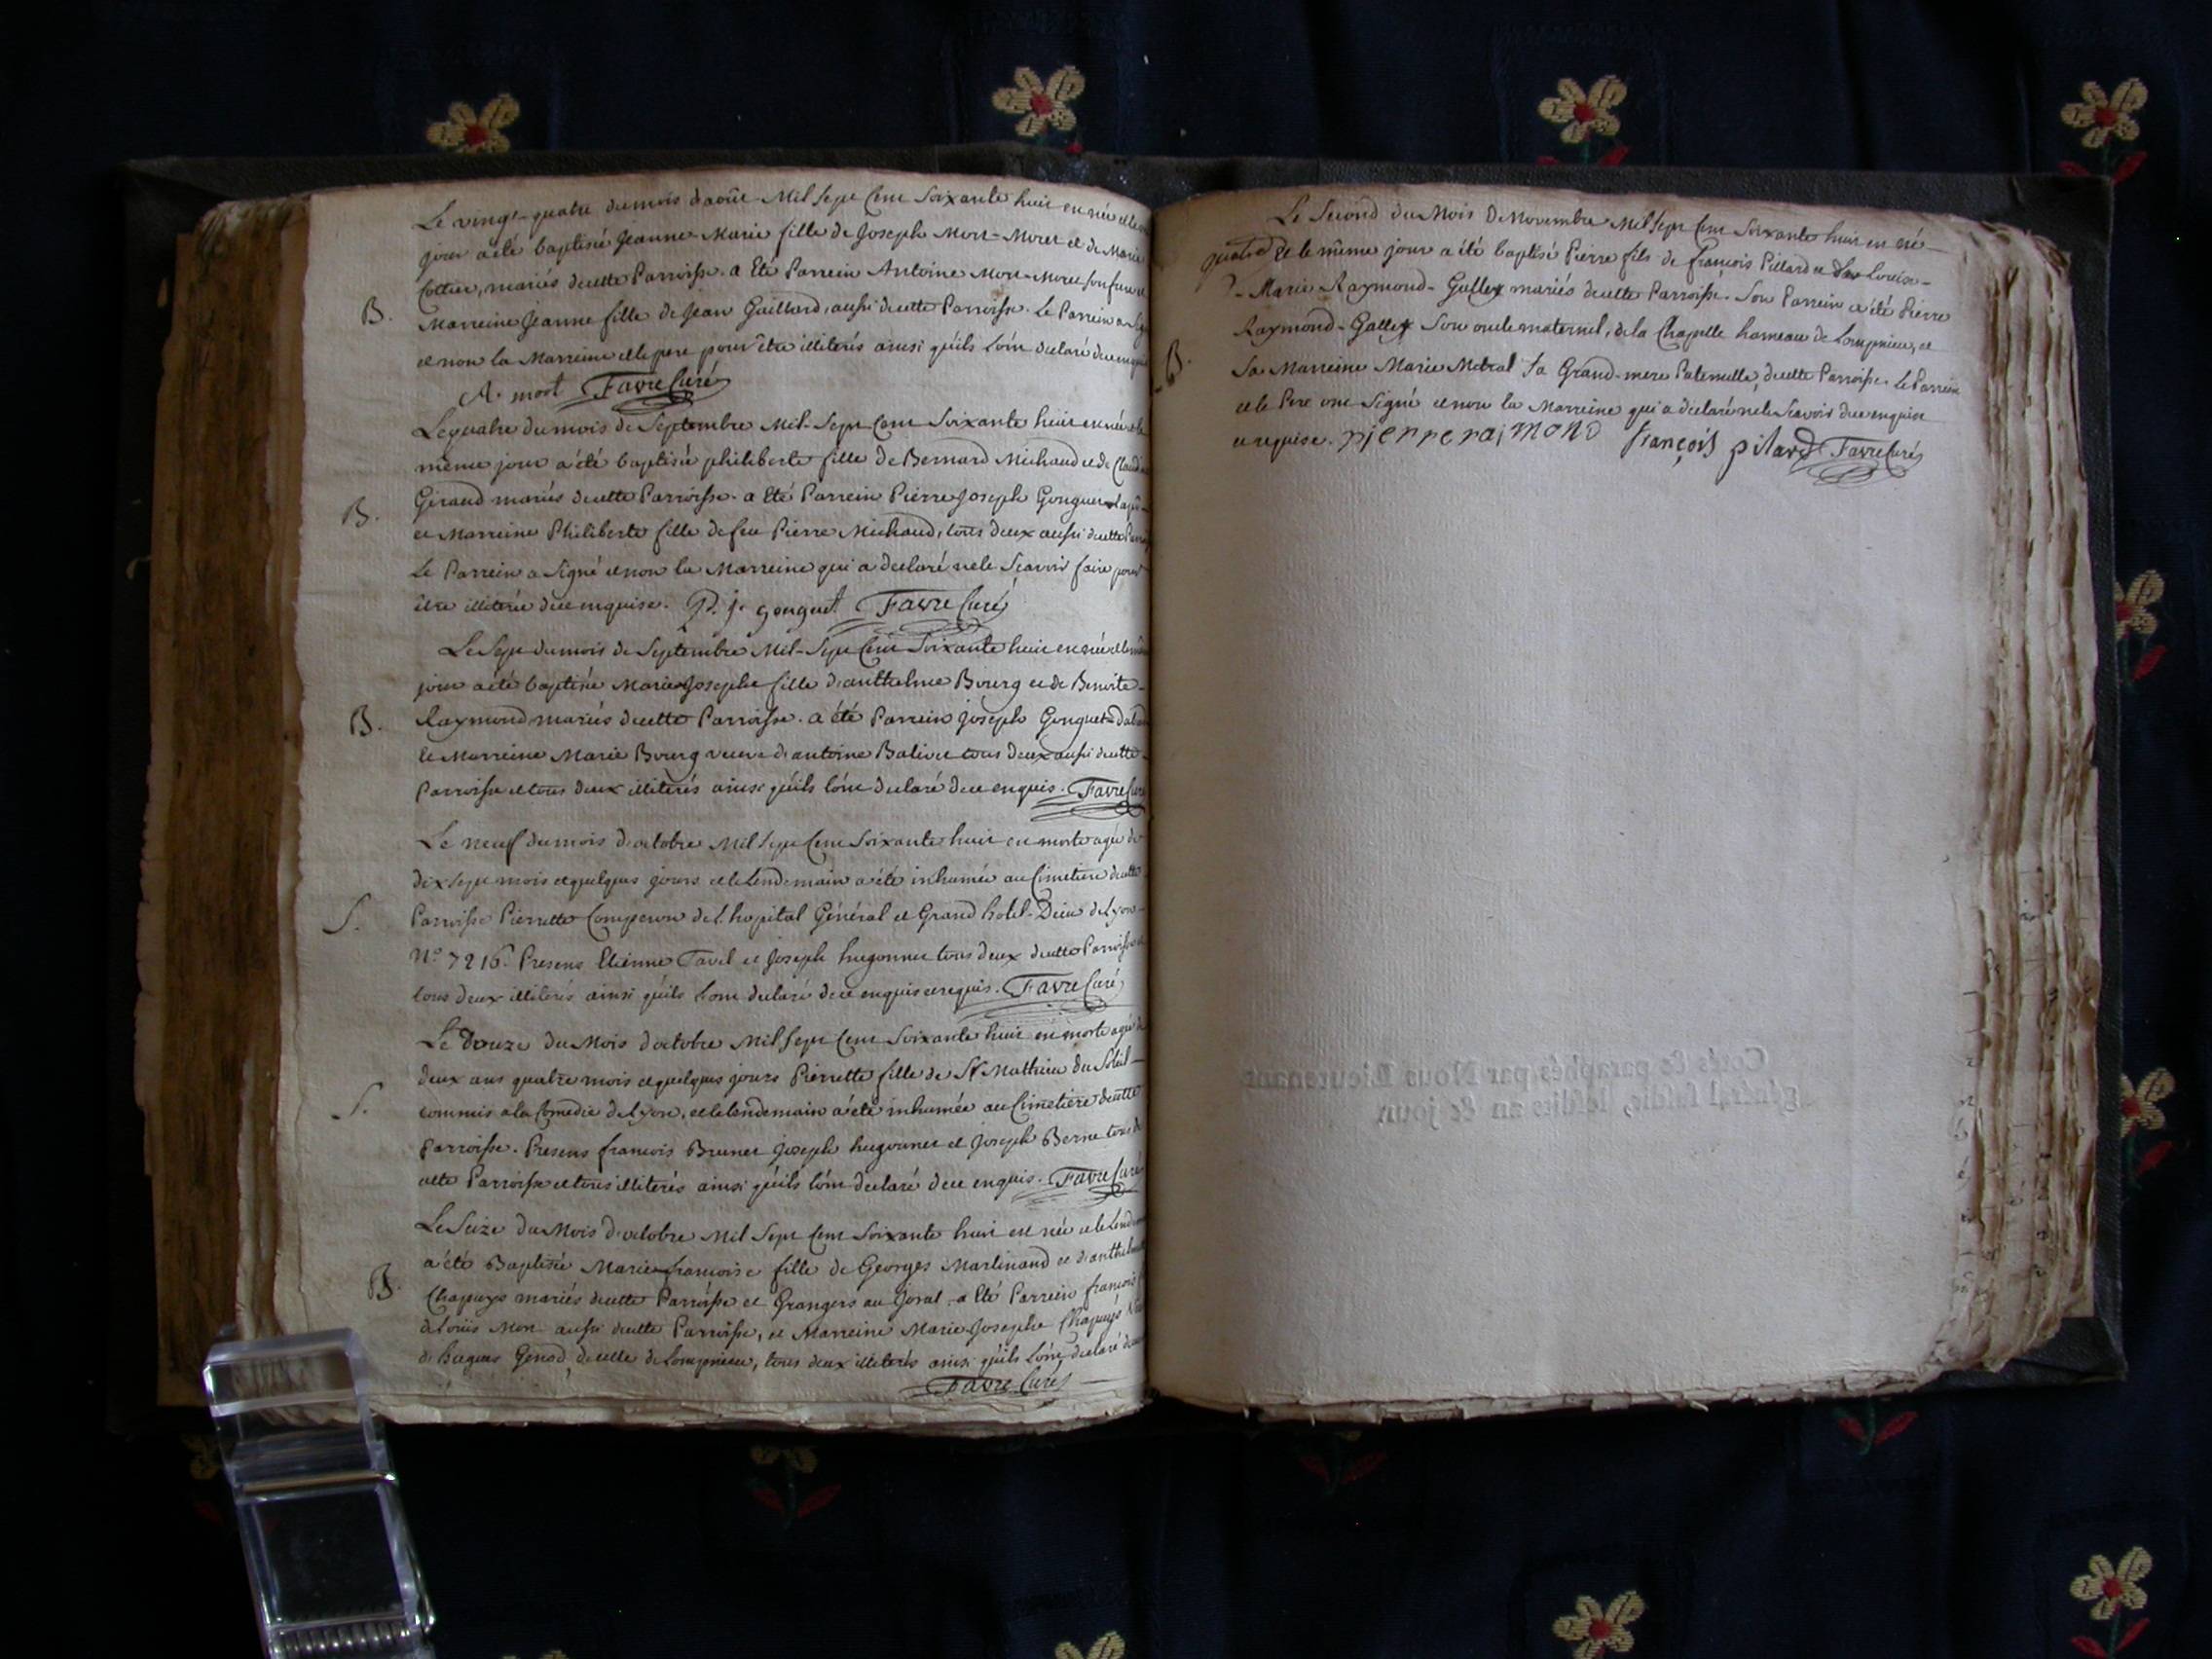 Le vingt-quatre du mois d'août Mil Sept Cent Soixante huit est née et le
jour a été baptisée Jeanne-Marie fille de Joseph Mort-Moret et de Marie
mariés de cette Parroisse. a Eté Parrein Antoine Mort-Moret son frere et
B. Marreine Jeanne fille de Jean Gaillard, aussi de cette Parroisse. Le Parrein a
et non la Marreine et le pere pour être illiterés ainsi qu'ils l'ont declaré de ce
A. mort Favre Curé
Le quatre du mois de Septembre Mil-Sept Cent Soixante huit est née et le
même jour a été baptisée philiberte fille de Bernard Michaud et de
B. Giraud mariés de cette Parroisse. a Eté Parrein Pierre Joseph
et Marreine Philiberte fille de feu Pierre Michaud, tous deux aussi de cette
Le Parrein a Signé et non la Marreine qui a declaré ne le Scavoir faire pour
être illiterée de ce enquise. P. j. gonguet Favre Curé
Le Sept du mois de Septembre Mil-Sept Cent Soixante huit est née et le
jour a été baptisée Marie Josephe fille d'anthelme Bourg et de Benoite
B. Raymond mariés de cette Parroisse. a été Parrein joseph Gonguet
et Marreine Marie Bourg veuve d'antoine Balivet tous deux aussi de cette
Parroisse et tous deux illiterés ainsi qu'ils l'ont declaré de ce enquis. Favre Curé
Le neuf du mois d'octobre Mil Sept Cent Soixante huit est morte agée de
dix sept mois et quelques jours et le lendemain a été inhumée au Cimetiere de cette
S. Parroisse Pierrette de L'hopital Général et Grand hotel-Dieu de Lyon
N.o 7216. Presens Etienne Tavel et Joseph hugonnet tous deux de cette Parroisse et
tous deux illiterés ainsi qu'ils l'ont declaré de ce enquis et requis. Favre Curé
Le Douze du Mois d'octobre Mil Sept Cent Soixante huit est morte agée de
deux ans quatre mois et quelques jours Pierrette fille de Sr Mathieu du Soleil
S. commis a la Comedie de Lyon, et le lendemain a été inhumée au Cimetiere de cette
Parroisse. Presens francois Brunet Joseph hugonnet et Joseph Berne tous de
cette Parroisse et tous illiterés ainsi qu'ils l'ont declaré de ce enquis. Favre Curé
Le Seize du Mois d'octobre Mil Sept Cent Soixante huit est née et le
a été Baptisée Marie francoise fille de Georges Martinand et
B. Chapuys mariés de cette Parroisse et Grangers au a Eté Parrein francois
de Louis Mon aussi de cette Parroisse, et Marreine Marie Josephe Chapuys
Genod, de celle de Lompnieu, tous deux illiterés ainsi qu'ils l'ont declaré
Favre Curé
Le Second du Mois De Novembre Mil Sept Cent Soixante huit est né
et le même jour a été baptisé Pierre fils de françois Pillard et Louise
Marie Raymond-Gallex mariés de cette Parroisse. Son Parrein a été Pierre
Raymond-Gallex Son oncle maternel, de la Chapelle hameau de Lompnieu, et
B. Sa Marreine Marie Metral Sa Grand-mere Paternelle, de cette Parroisse. Le Parrein
et le Pere ont Signé et non la Marreine qui a declaré ne le Scavoir de ce enquise
et requise. pierre raimond françois pilard Favre Curé